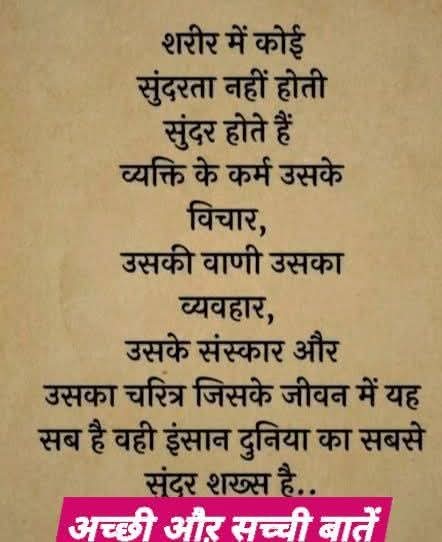 शरीर में कोई
सुंदरता नहीं होती
सुंदर होते हैं
व्यक्ति के कर्म उसके
विचार,
उसकी वाणी उसका
व्यवहार,
उसके संस्कार और
उसका चरित्र जिसके जीवन में यह
सब है वही इंसान दुनिया का सबसे
सुंदर शख्स है..
अच्छी औऱ सच्ची बातें